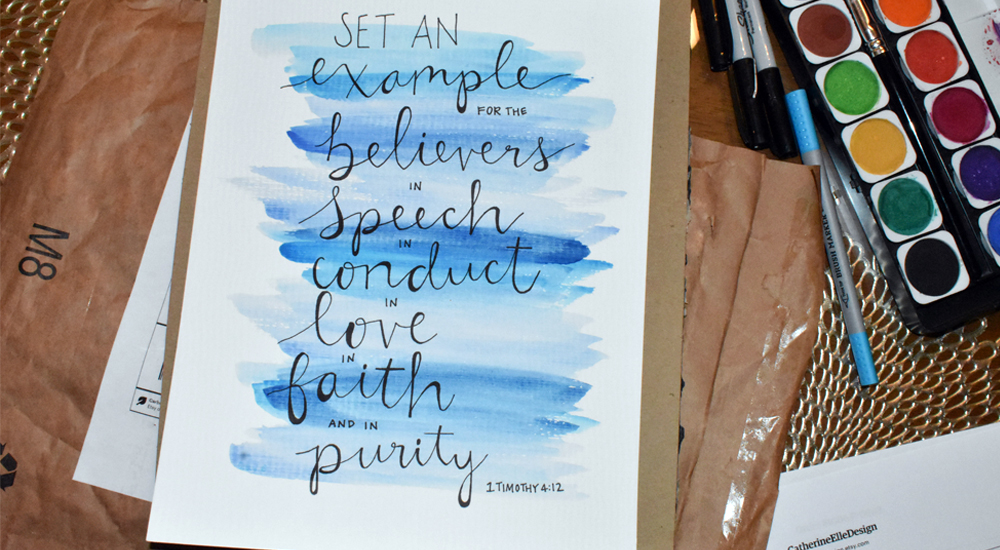 SET AN
example
FOR THE
believers
IN
speech
IN
conduct
IN
love
IN
faith
AND IN
purity
1 TIMOTHY 4:12
M8
BRUSH MARKER
CatherineElleDesign